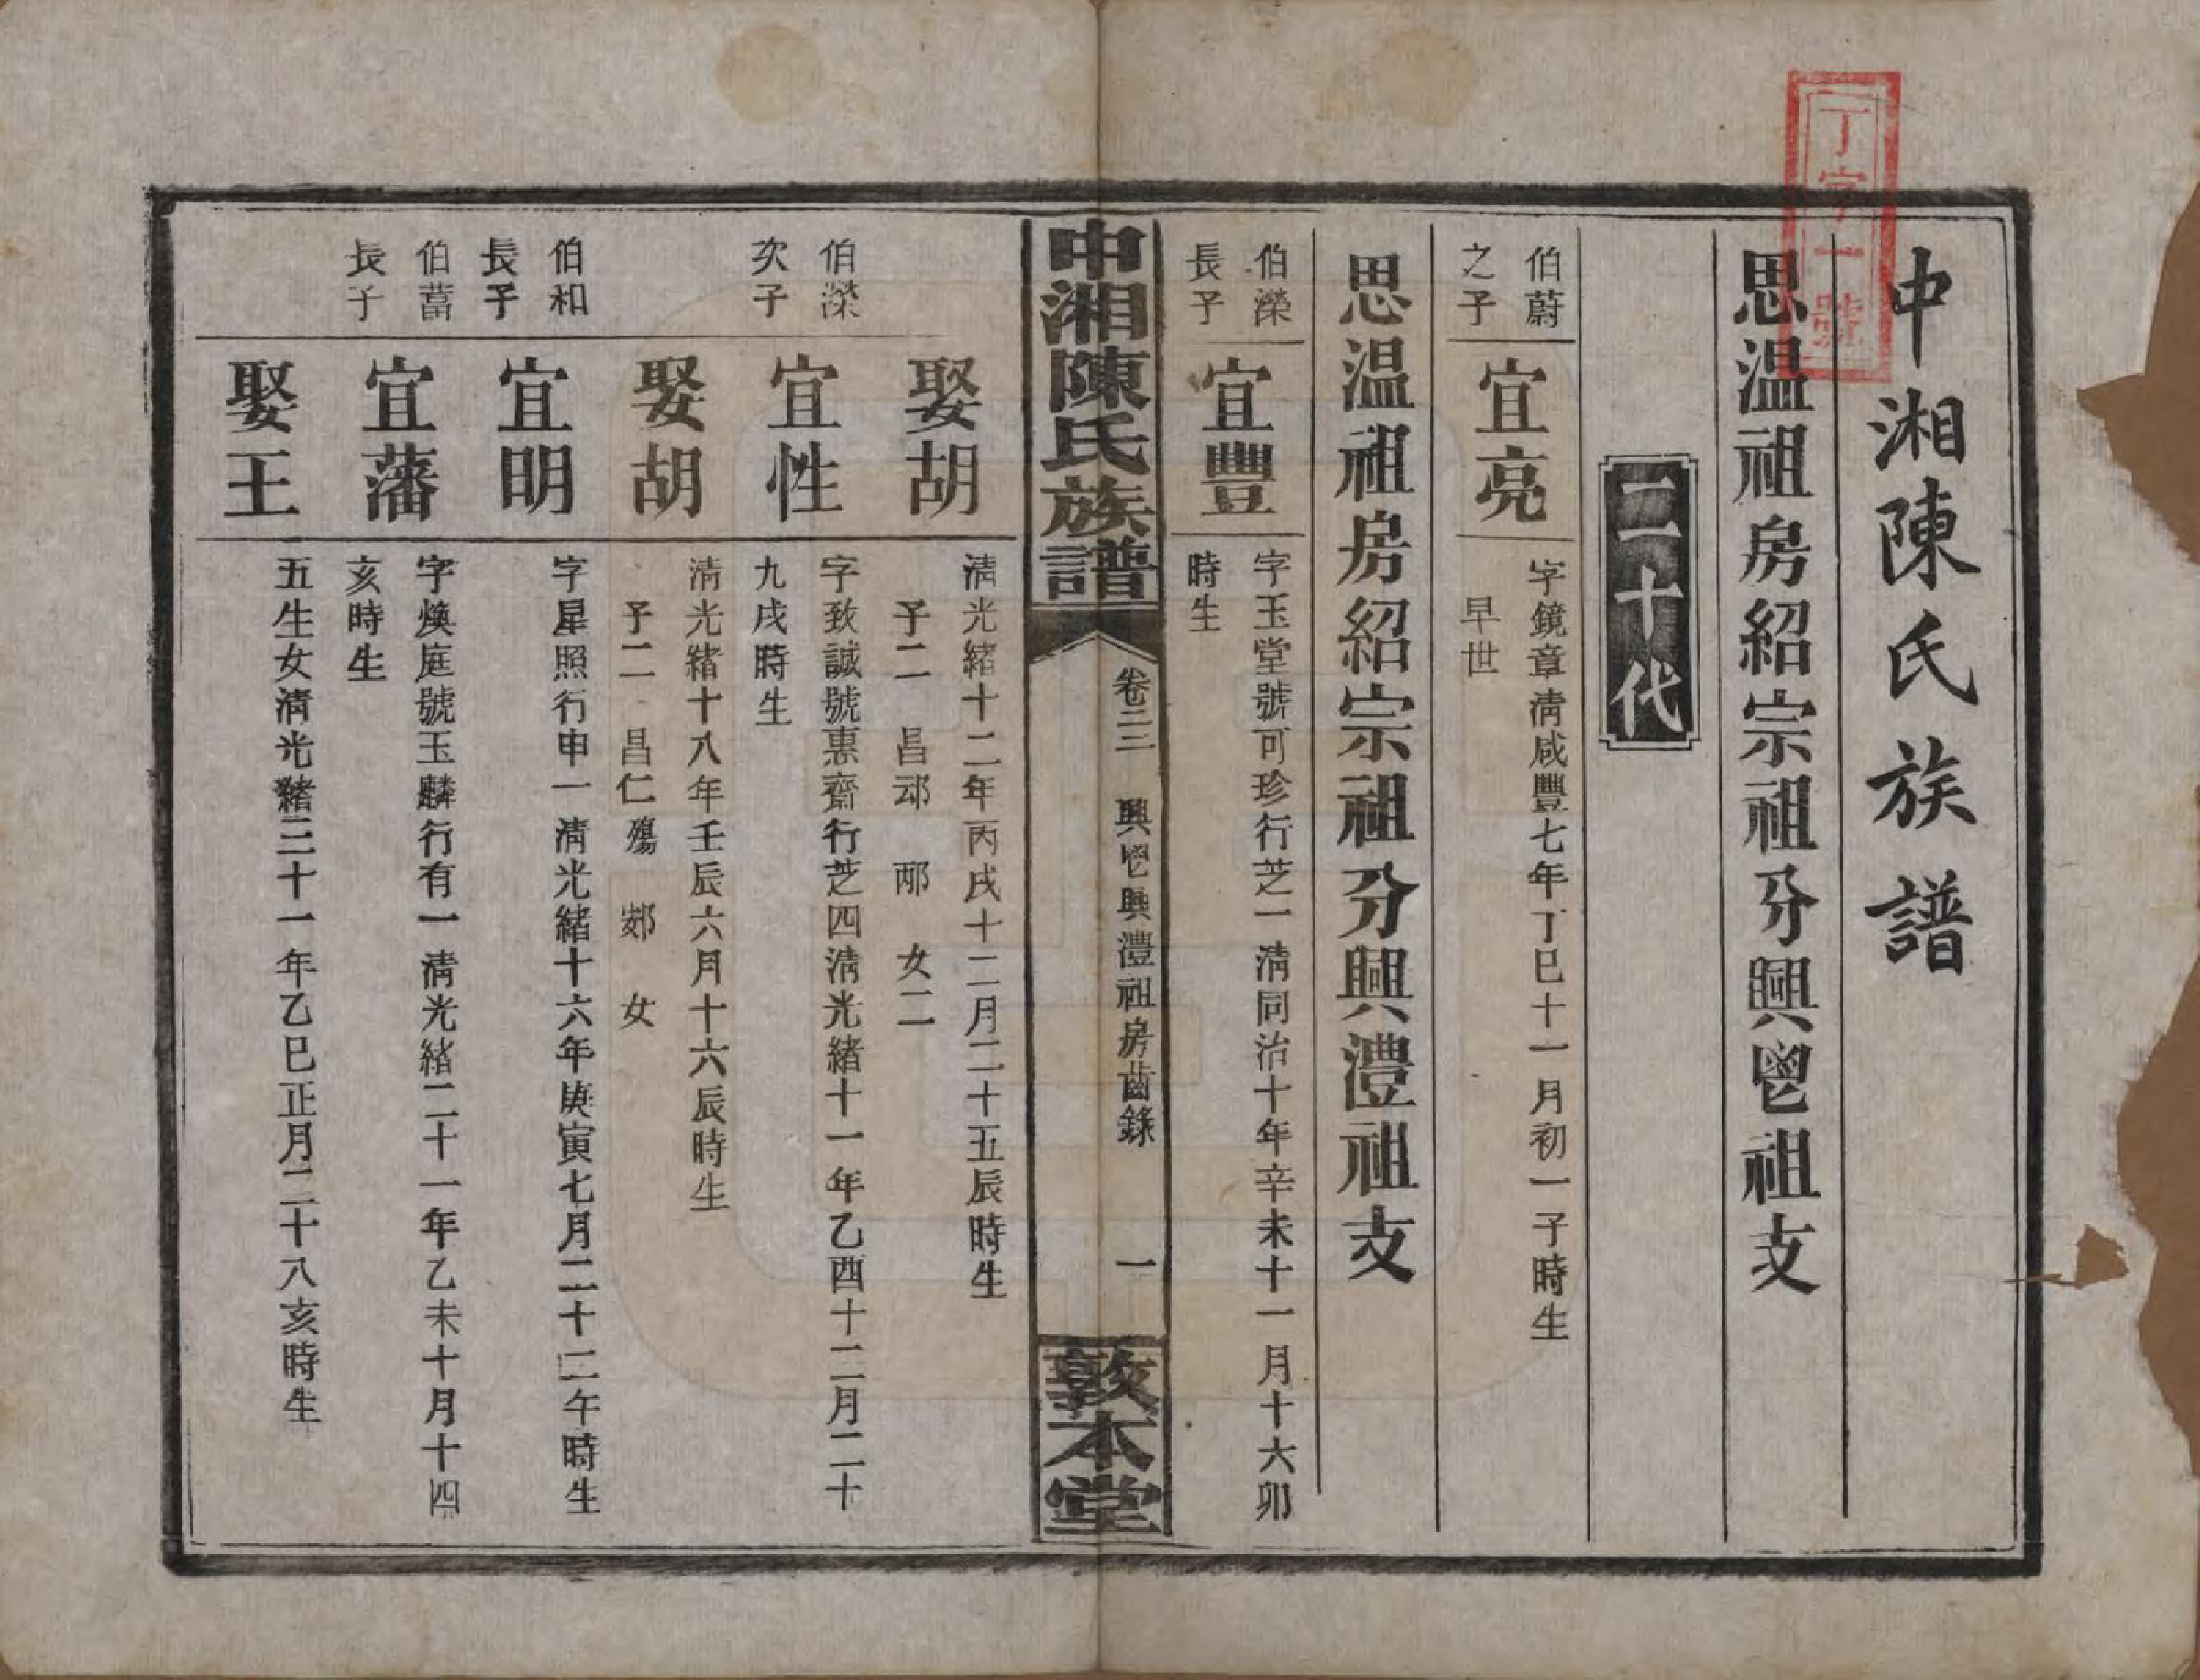 丁字一號
中湘陳氏族譜
思溫祖房紹宗祖分興鬯祖支
二十代
伯蔚
之子
宜亮
字鏡章清咸豐七年丁巳十一月初一子時生
早世
思溫祖房紹宗祖分興澧祖支
伯濚
長子
宜豐
字玉堂號可珍行芝一清同治十年辛未十一月十六卯
時生
中湘陳氏族譜
卷三 興鬯興澧祖房齒錄 一
敦本堂
娶胡
清光緒十二年丙戌十二月二十五辰時生
子二 昌邧 邴 女二
伯濚
次子
宜性
字致誠號惠齋行芝四清光緒十一年乙酉十二月二十
九戌時生
娶胡
清光緒十八年壬辰六月十六辰時生
子二 昌仁殤 郟 女
伯和
長子
宜明
字星照行申一清光緒十六年庚寅七月二十二午時生
伯蓄
長子
宜藩
字煥庭號玉麟行有一清光緒二十一年乙未十月十四
亥時生
娶王
五生女清光緒三十一年乙巳正月二十八亥時生